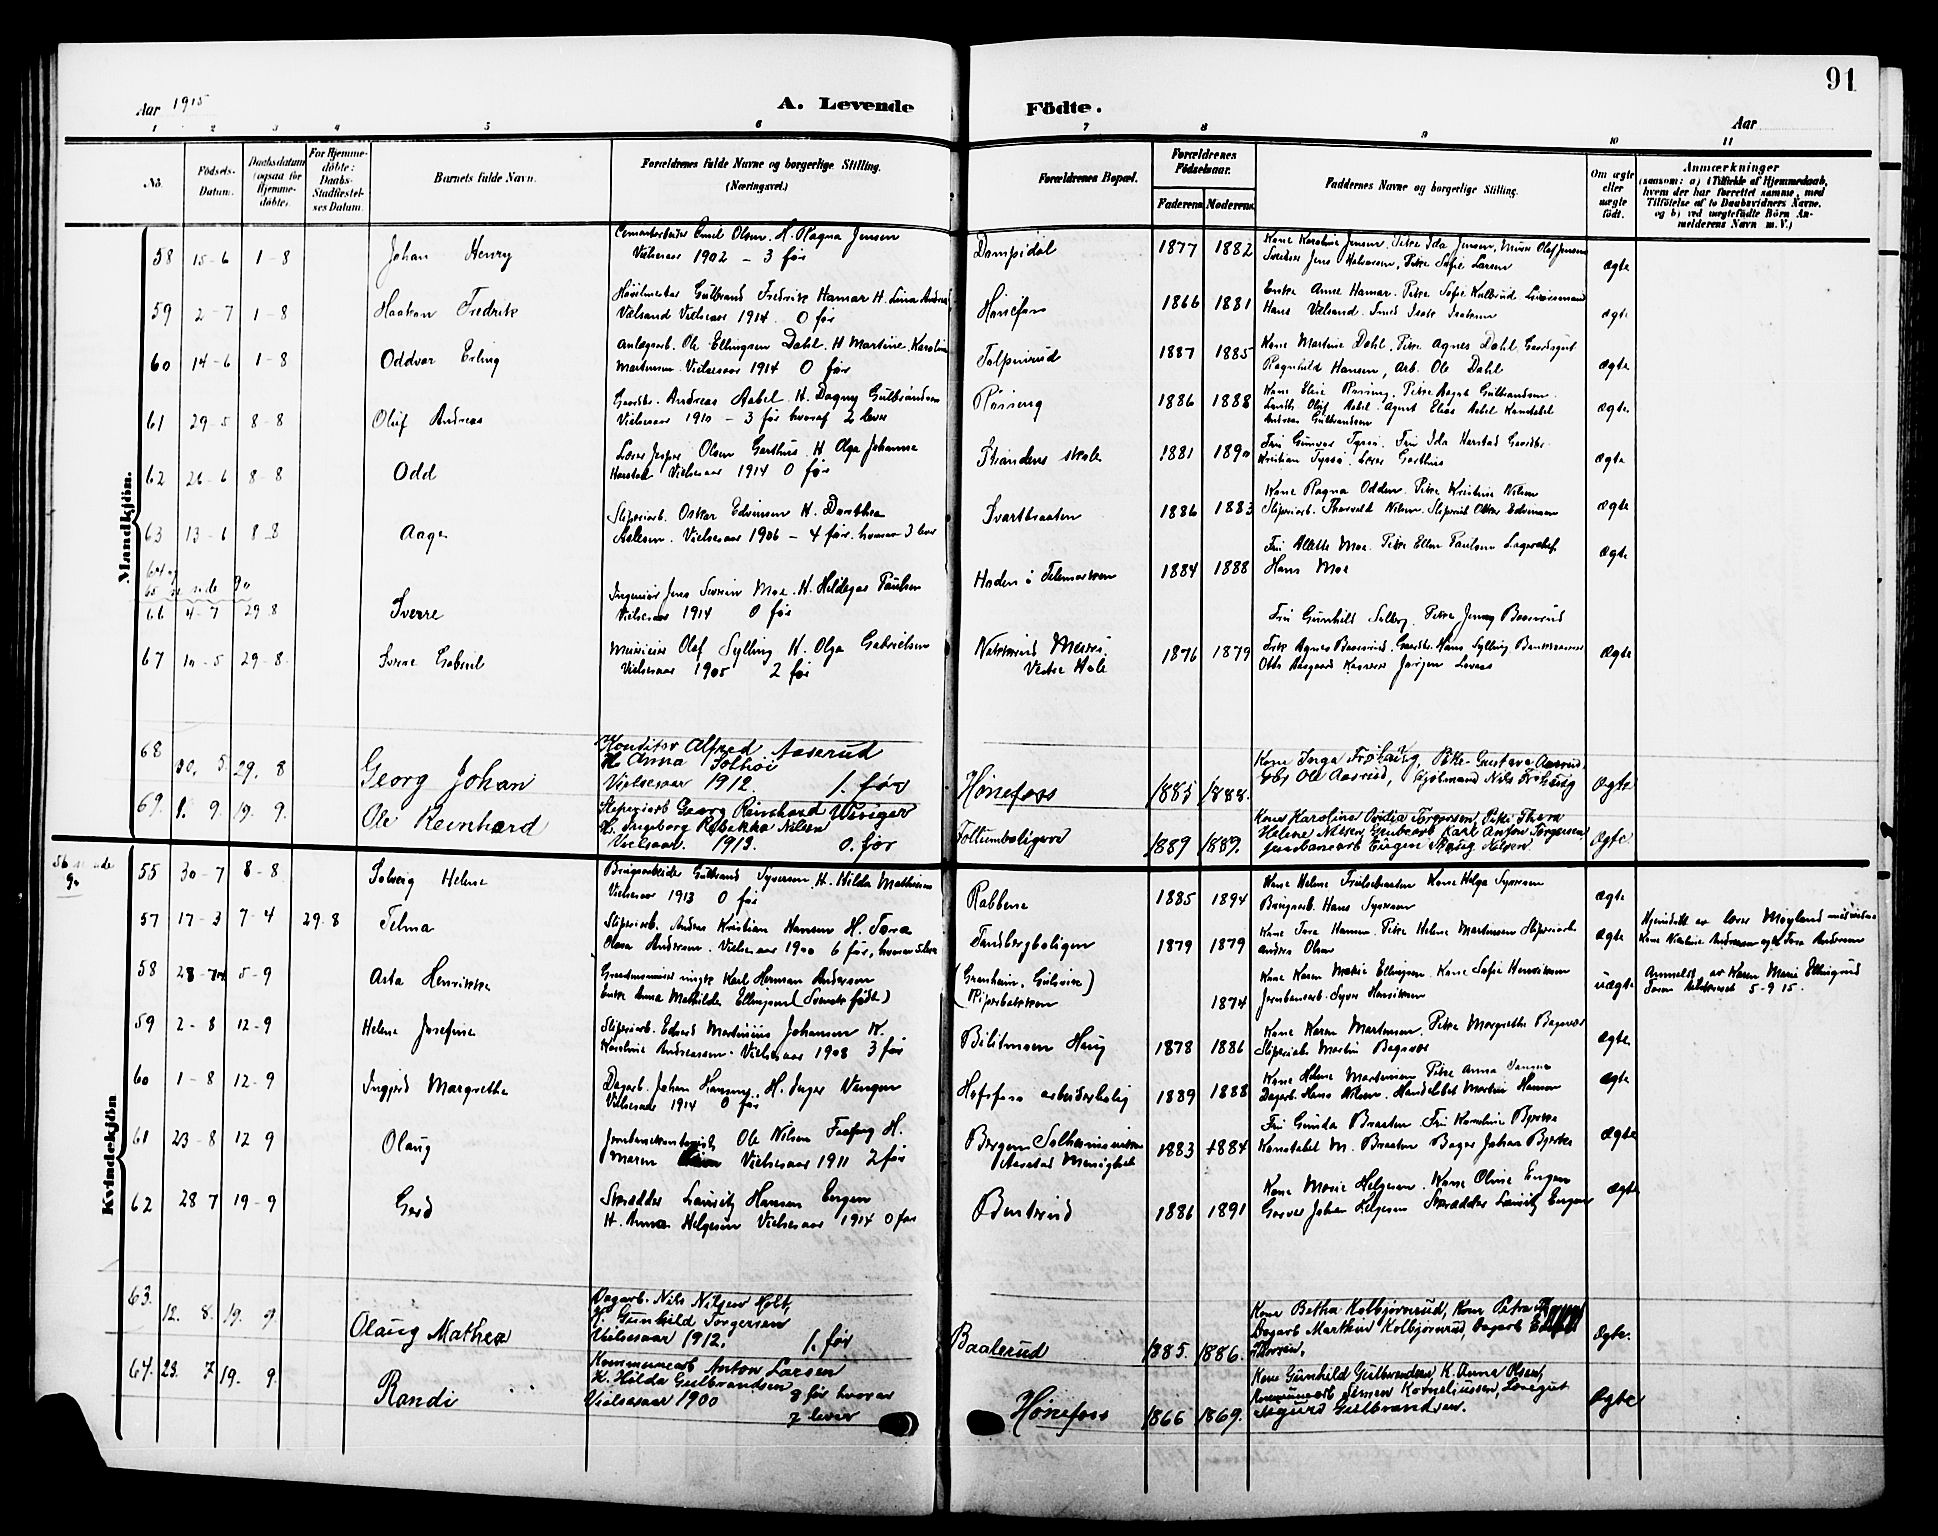 91
Aar 1915
A. Levende Födte.
Aar
1 2 3 4 5 6 7 8 9 10 11
No. Födsels-Datum. Daabsdatum (ogsaa for Hjemme-döbte). For Hjemme-döbte: Daabs-Stadfæstel-ses Datum. Barnets fulde Navn. Forældrenes fulde Navne og borgerlige Stilling. (Næringsvei.) Forældrenes Bopæl. Forældrenes Födselsaar. Faderens Moderens Faddernes Navne og borgerlige Stilling. Om ægte eller uægte födt. Anmærkninger (saasom: a) i Tilfælde af Hjemmedaab, hvem der har forrettet samme, med Tilföielse af to Daabsvidners Navne, og b) ved uægtefödte Börn An-melderens Navn m. V.)
Mandkjön.
58 15-6 1-8 Johan Henry Emil Olsen. H. Ragna Jensen
Vielsesaar 1902 - 3 før
Dampsdal 1877 1882 Kone Karoline Jensen. Pike Ida Jensen. Olaf Jensen
Jens Halvorsen, Pike Sofie Larsen ægte
59 2-7 1-8 Haakon Fredrik Gulbrand Fredrik Hamar H. Lina Andrea
Vælsand Vielsesaar 1914. 0 før
Hønefos 1866 1881 Enke Anne Hamar. Pike Sofie
Hans Vælsand. ægte
60 14-6 1-8 Oddvar Erling Anlægsarb. Ole Ellingsen Dahl. H Martine Karoline
Martinsen. Vielsesaar 1914 0 før
Tolpinrud 1887 1885 Kone Martine Dahl. Pike Agnes Dahl. Gaardsgut
Ragnhild Hansen, Arb. Ole Dahl ægte
61 29-5 8-8 Oluf Andreas Gaardbr. Andreas Aabel. H. Dagny Gulbrandsen
Vielsesaar 1910 - 3 før hvoraf 2 lever
Risseng 1886 1888 Kone Elise Pike Agnt Gulbrandsen.
Oluf Aabel. Agent Elias Aabel
Andreas Gulbrandsen ægte
62 26-6 8-8 Odd Lærer Jesper Olsen Garthus. H Olga Johanne
Harstad Vielsesaar 1914 0 før
Strandens skole 1881 1890 Fru Gunvor Tyssø. Fru Ida Harstad Gaardbr.
Kristian Tyssø. Lærer Garthus ægte
63 13-6 8-8 Aage Sliperiarb. Oskar Edvinsen H. Dorthea
Aslesen. Vielsesaar 1906 - 4 før. hvorav 3 lever
Svartbraaten 1886 1883 Kone Ragna Odden. Pike Kristine Nilsen
Sliperiarb. Thorvald Nilsen. Sliperiarb Oskar Edvinsen ægte
64 og 65 se side 90
66 4-7 29-8 Sverre Ingeniør Jens Severin Moe. H. Hildegar Paulsen
Vielsesaar 1914 0 før
Haden i Telemarken 1884 1888 Fru Alette Moe. Pike Ellen Paulsen Lagerchef
Hans Moe ægte
67 10-5 29-8 Sverre Gabriel Olaf Sylling H. Olga Gabrielsen
Vielsesaar 1905 2 før
Vestre Hole 1876 1879 Fru Gunhild Solberg. Pike Jenny Baarsrud
Frk Agnes Baarsrud. Gaardbr. Hans Sylling
Otto Aasgaard Kasserer Jørgen Lovaas ægte
68 30. 5. 29. 8 Georg Johan Konditor Alfred Aaserud
H. Anna Solhøi
Vielsesaar 1912. 1. før
Hønefoss 1885 1888. Kone Inga Frøhaug, Pike Gustava Aasrud
Gbr Ole Aasrud, Kjøbmand Nils Frøhaug Ægte
69. 1. 9. 19. 9. Ole Reinhard Sliperiarb Georg Reinhard Winger
H. Ingeborg Rebekka Nilsen
Vielsaar. 1913. 0. før
Follumboligene 1889 1889. Kone Karoline Ovidia Torgersen, Pike Thora
Helene Nilsen, Grubearb Karl Anton Torgersen
Jernbanearb Eugen Nilsen. Ægte.
Kvindekjön
56 se side 90
55 30-7 8-8 Solveig Helene Brugsarbeider Gulbrand Syversen. H. Hilda Mathisen
Vielsesaar 1913 0 før
Rabbene 1885 1894 Kone Helene Frøilsebraaten Kone Helga Syversen
Brugsarb. Hans Syversen ægte
57 17-3 7-4 29-8 Telma Sliperiarb. Andreas Kristian Hansen H. Tora
Olava Andersen. Vielsesaar 1900 6 før, hvorav 5 lever
Tandbergboligen 1879 1879 Kone Tora Hansen. Pike Helene Martinsen Sliperiarb
Anders Olsen ægte Hjemdøbt av lærer Møgland
58 28-7 5-9 Asta Henrikke Karl Herman Andersen
Enke Anna Mathilde Ellingsen (Svensk født)
(Grenheim, Gulsvik)
(Riperbakken) 1874 Kone Karen Marie Ellingsen. Kone Sofie Henriksen
Jernbanearb. Syver Henriksen uægte Anmeldt av Karen Marie Ellingsrud
5-9 15.
59 2-8 12-9 Helene Josefine Sliperiarb. Edvard Martinius Johansen H.
Karoline Andreassen. Vielsesaar 1908 3 før
Bilitmoen Haug 1878 1886 Kone Karen Martinsen. Pike Margrethe Bagaas
Sliperiarb Martin Bagaas ægte
60 1-8 12-9 Ingjerd Margrethe Dagarb. Johan Hansen. H. Inger Vengen
Vielsesaar 1914 0 før
Hofsfoss arbeiderbolig 1889 1888 Kone Helene Martinsen Pike Anna
Dagarb. Hans Nilsen. Martin Hansen ægte
61 23-8 12 9 Olaug Ole Nilsen H.
Maren Vielsesaar 1911 2 før
Bergen Solheimsviken
Aarstad Menighet 1883 1884 Fru Gunda Braaten Fru Karoline Bjerke
Konstabel M. Braaten Bager Johan Bjerke ægte
62 28 7 19-9 Gerd Skrædder Lauritz Hansen Engen
H. Anna Helgesen Vielsesaar 1914 0 før
Bentsrud 1886 1891 Kone Marie Helgesen. Kone Oline Engen
Garver Johan Helgesen Skrædder Lauritz Engen ægte
63. 12. 8. 19. 9. Olaug Mathea Dagarb. Nils Nilsen Holt,
H. Gunhild Torgersen
Vielsesaar 1912. 1. før
Baalerud 1885. 1886. Kone Betha Kolbjørnrud, Kone Petra
Dagarb Martkin Kolbjørnrud, Dagarb
Thorsen. Ægte.
64. 23. 7 19. 9 Randi Kommunearb Anton Larsen
H. Hilda Gulbrandsen
Vielsesaar 1900 8 før hvorav
7 lever
Hønefoss 1866 1869. Kone Gunhild Gulbrandsen, K. Anna Olsen,
Kommunearb Simen Korneliussen, Løsegut
Sigurd Gulbrandsen. Ægte